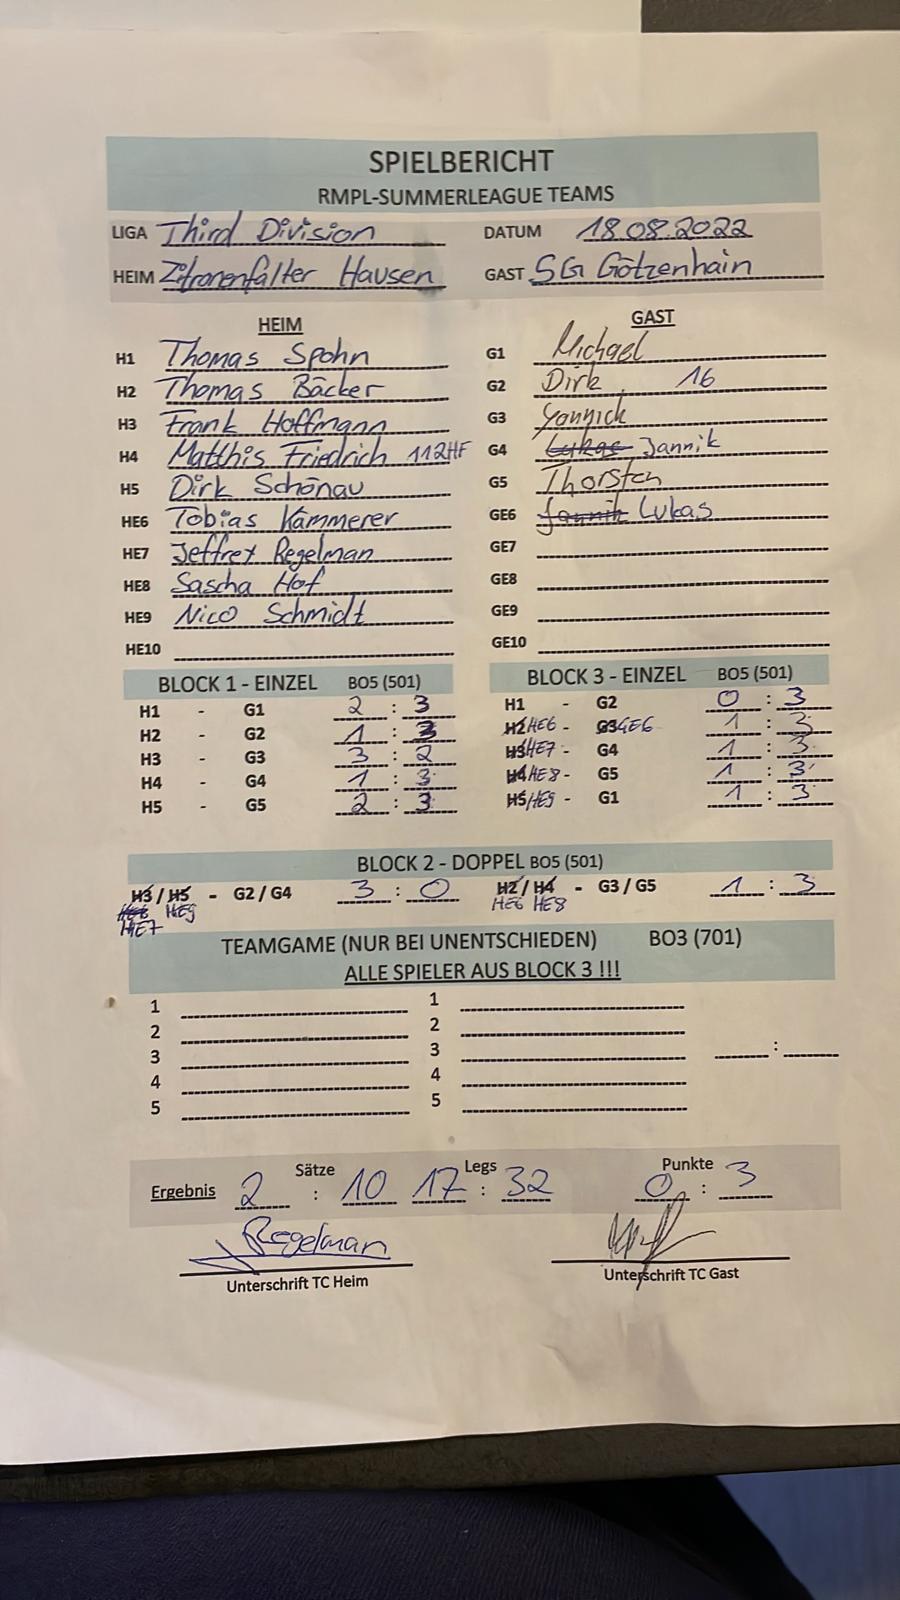 SPIELBERICHT
RMPL-SUMMERLEAGUE TEAMS
LIGA Third Division DATUM 18.08.2022
HEIM Zitronenfalter Hausen GAST SG Götzenhain
HEIM GAST
H1 Thomas Spohn G1 Michael
H2 Thomas Bäcker G2 Dirk 16
H3 Frank Hoffmann G3 Yannick
H4 Matthis Friedrich 112HF G4 Lukas Jannik
H5 Dirk Schönau G5 Thorsten
HE6 Tobias Kämmerer GE6 Jannik Lukas
HE7 Jeffrey Regelman GE7
HE8 Sascha Hof GE8
HE9 Nico Schmidt GE9
HE10 GE10
BLOCK 1 - EINZEL BO5 (501) BLOCK 3 - EINZEL BO5 (501)
H1 - G1 2 : 3 H1 - G2 0 : 3
H2 - G2 1 : 3 H2 HE6 - G3 GE6 1 : 3
H3 - G3 3 : 2 H3 HE7 - G4 1 : 3
H4 - G4 1 : 3 H4 HE8 - G5 1 : 3
H5 - G5 2 : 3 H5 HE9 - G1 1 : 3
BLOCK 2 - DOPPEL BO5 (501)
H3 / H5 - G2 / G4 3 : 0 H2 / H4 - G3 / G5 1 : 3
HE9 HE6 HE8
HE7
TEAMGAME (NUR BEI UNENTSCHIEDEN) BO3 (701)
ALLE SPIELER AUS BLOCK 3 !!!
1 1
2 2
3 3 :
4 4
5 5
Sätze Legs Punkte
Ergebnis 2 : 10 17 : 32 0 : 3
Regelman
Unterschrift TC Heim Unterschrift TC Gast